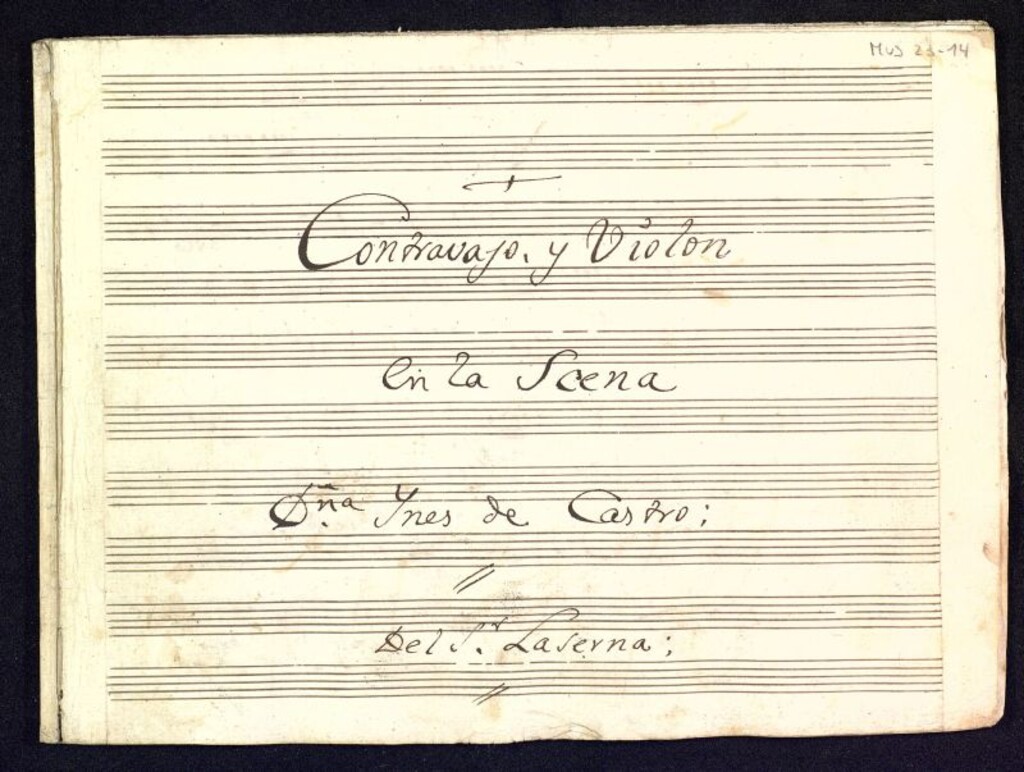 MUS 23-14
Contravajo. y Violon
En la Scena
Dñ.a Ynes de Castro;
Del S.r Laserna;